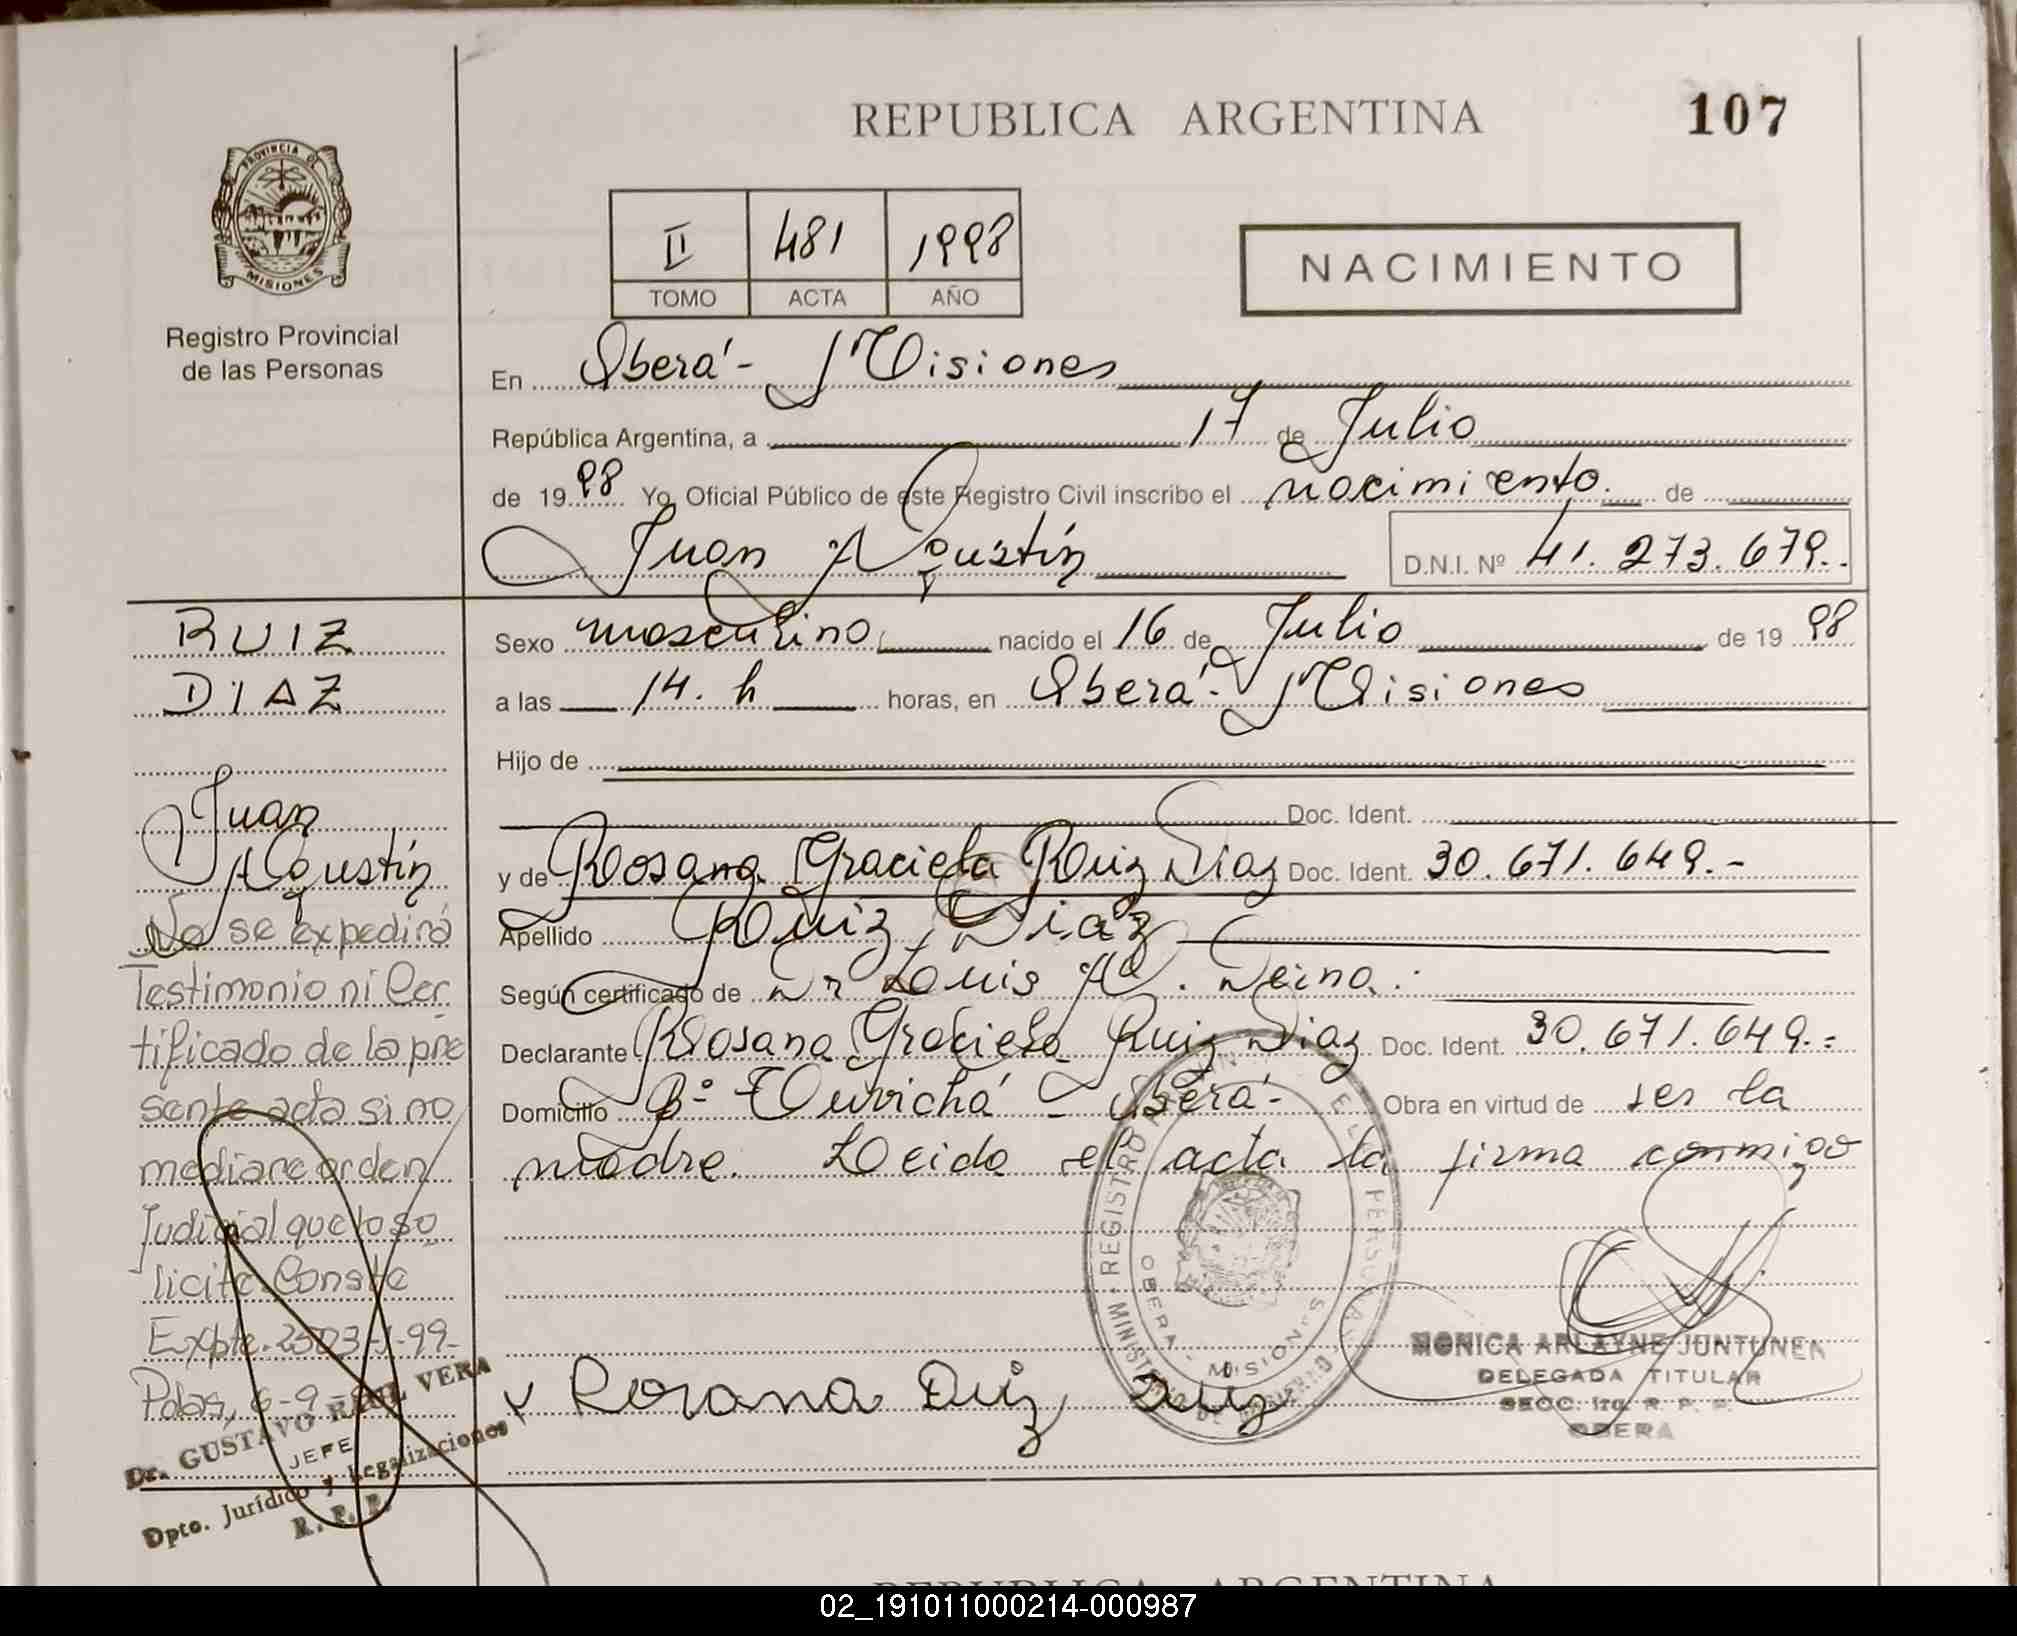 REPUBLICA ARGENTINA
107
PROVINCIA DE
MISIONES
Registro Provincial
de las Personas
II 481 1998
TOMO ACTA AÑO
NACIMIENTO
En Oberá - Misiones
República Argentina, a 17 de Julio
de 1998 Yo, Oficial Público de este Registro Civil inscribo el nacimiento. de
Juan Agustín D.N.I. Nº 41.273.679..
RUIZ
DIAZ
Juan
Agustín
No se expedirá
Testimonio ni Cer
tificado de la pre
sente acta si no
mediare orden
Judicial que lo so
licite. Conste
Expte. 2503-J-99-
Pdas, 6-9
Dr. GUSTAVO RAUL VERA
JEFE
Dpto. Jurídico y Legalizaciones
R. P. P.
Sexo masculino, nacido el 16 de Julio de 1998
a las 14. h horas, en Oberá - Misiones
Hijo de
Doc. Ident.
y de Rosana Graciela Ruiz Diaz Doc. Ident. 30.671.649.-
Apellido Ruiz Diaz
Según certificado de Dr Louis A.
Declarante Rosana Graciela Ruiz Diaz Doc. Ident. 30.671.649.=
Domicilio Bº Tuvichá - Oberá - Obra en virtud de ser la
madre. Leida el acta la firma conmigo
REGISTRO
OBERA - MISIONES
MINISTERIO DE GOBIERNO
x Rosana Ruiz
MONICA ARLAYNE JUNTUNEN
DELEGADA TITULAR
SECC. 1ra. R. P. P.
OBERA
REPUBLICA ARGENTINA
02_191011000214-000987